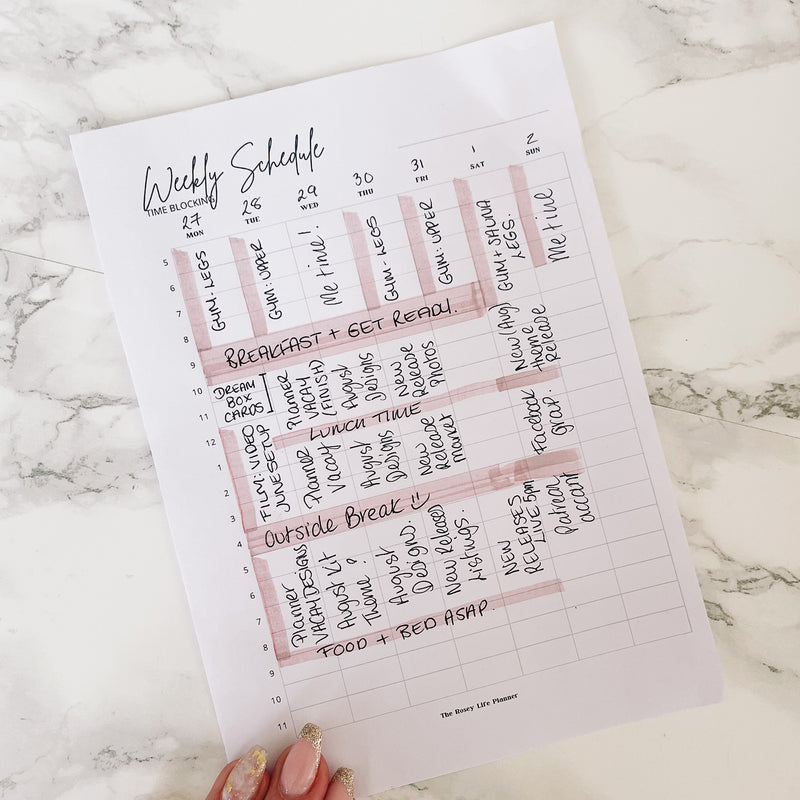 Weekly Schedule
TIME BLOCKING
27 28 29 30 31 1 2
MON TUE WED THU FRI SAT SUN
5
6
7
8
9
10
11
12
1
2
3
4
5
6
7
8
9
10
11
GYM: LEGS
GYM: UPPER
Me time!
GYM - LEGS
GYM: UPPER
GYM + SAUNA
LEGS.
Me time
BREAKFAST + GET READY.
DREAM
BOX
CARDS
PLANNER
VACAY
(FINISH)
August
Designs
New
Release
Photos
New Aug
theme
Release
LUNCH TIME
FILM: VIDEO
JUNE SETUP
Planner
Vacay
August
Designs
New
Release
Market
Facebook
Group.
Outside Break
Planner
VACAY DESIGNS
August Kit
Theme?
August
Designs.
New Release
Listings.
NEW
RELEASES
LIVE 5pm
Patreon
account
FOOD + BED ASAP.
The Rosey Life Planner